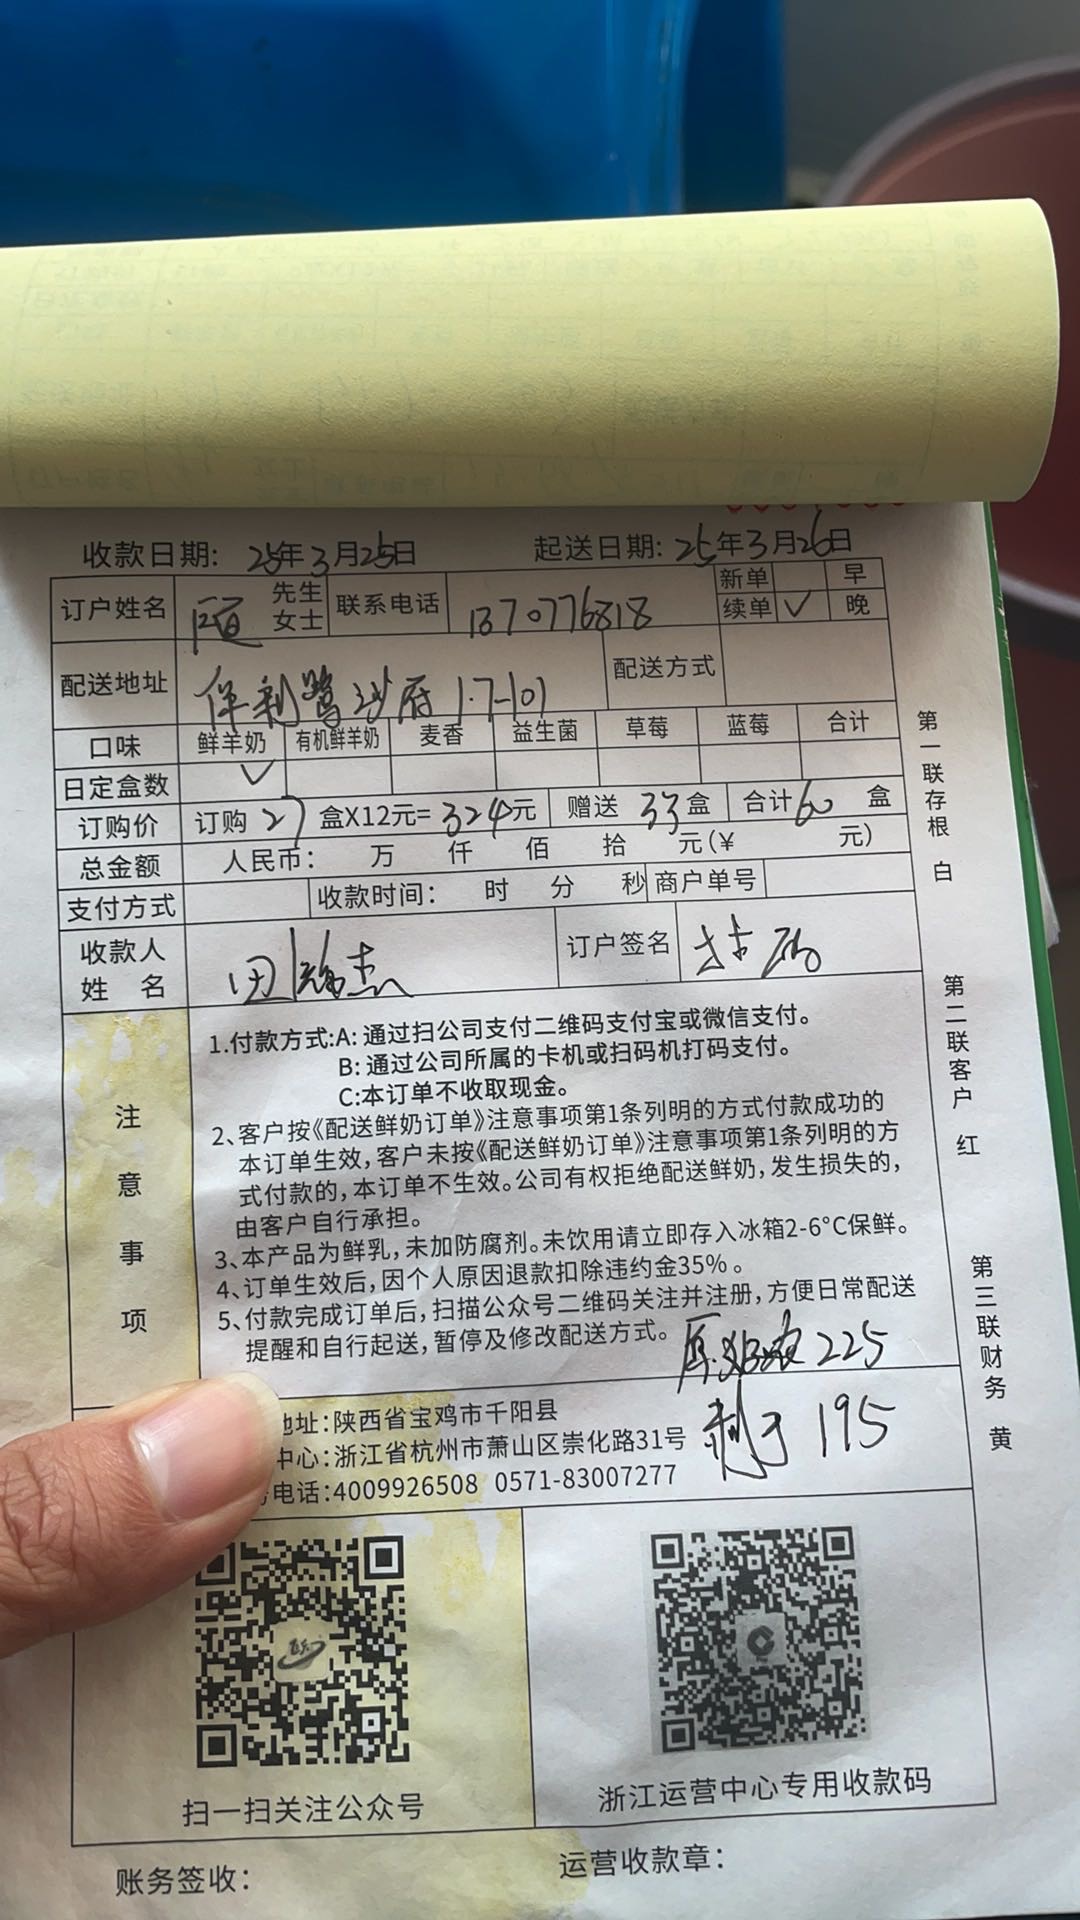 收款日期: 25年3月25日 起送日期: 25年3月26日
订户姓名 先生 女士 联系电话 1370776818 新单 早
续单 ✓ 晚
配送地址 保利鹭沙府1·7-101 配送方式
口味 鲜羊奶 有机鲜羊奶 麦香 益生菌 草莓 蓝莓 合计
日定盒数 ✓
订购价 订购 27 盒X12元= 324元 赠送 33盒 合计60 盒
总金额 人民币: 万 仟 佰 拾 元(¥ 元)
支付方式 收款时间: 时 分 秒 商户单号
收款人 姓 名 田 杰 订户签名
注意事项
1.付款方式:A:通过扫公司支付二维码支付宝或微信支付。
B:通过公司所属的卡机或扫码机打码支付。
C:本订单不收取现金。
2、客户按《配送鲜奶订单》注意事项第1条列明的方式付款成功的
本订单生效,客户未按《配送鲜奶订单》注意事项第1条列明的方
式付款的,本订单不生效。公司有权拒绝配送鲜奶,发生损失的,
由客户自行承担。
3、本产品为鲜乳,未加防腐剂。未饮用请立即存入冰箱2-6°C保鲜。
4、订单生效后,因个人原因退款扣除违约金35%。
5、付款完成订单后,扫描公众号二维码关注并注册,方便日常配送
提醒和自行起送,暂停及修改配送方式。
225
剩于 195
地址:陕西省宝鸡市千阳县
中心:浙江省杭州市萧山区崇化路31号
电话:4009926508 0571-83007277
扫一扫关注公众号
浙江运营中心专用收款码
账务签收:
运营收款章:
第一联存根 白
第二联客户 红
第三联财务 黄